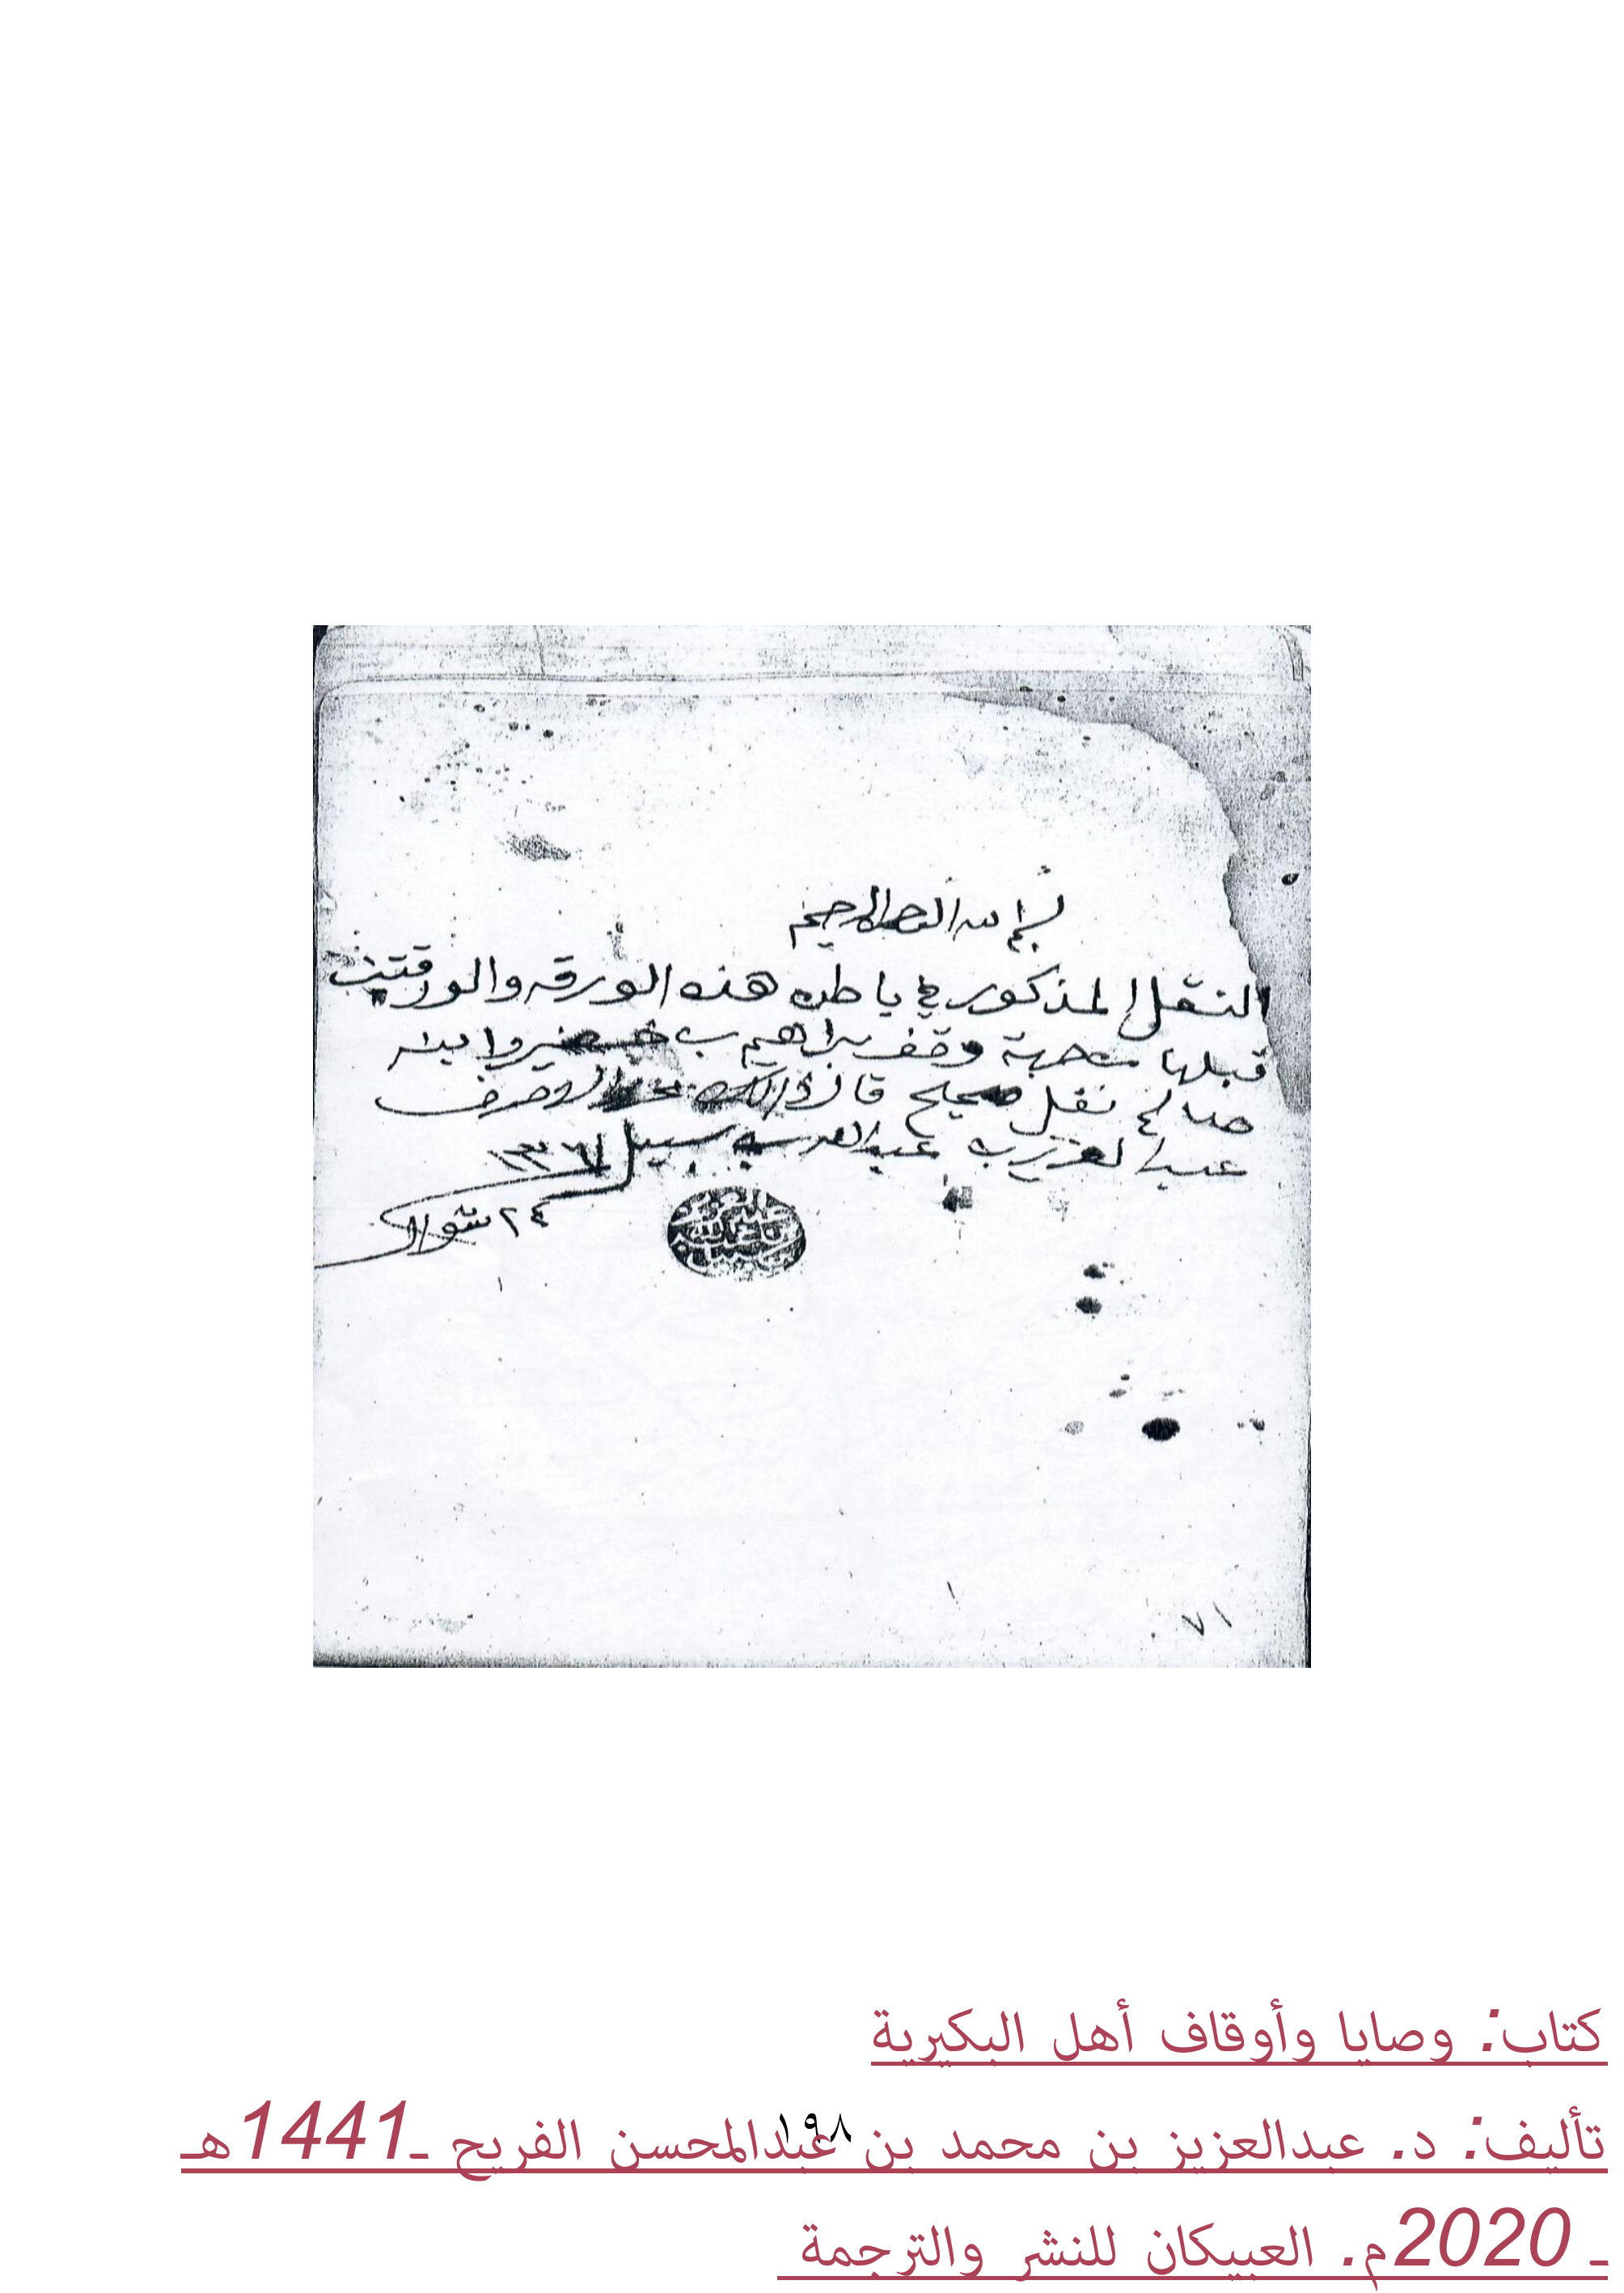 بسم الله الرحمن الرحيم
النقل المذكور في باطن هذه الورقه والورقتين
قبلها من جهة وقف براهيم بن خضير وابنه
صالح نقل صحيح قال ذالك
عبدالعزيز بن عبدالله بن سبيل ١٣٦١
٢٤ شوال
٧١
كتاب: وصايا وأوقاف أهل البكيرية
١٩٨
تأليف: د. عبدالعزيز بن محمد بن عبدالمحسن الفريح ـ1441هـ
ـ 2020م. العبيكان للنشر والترجمة